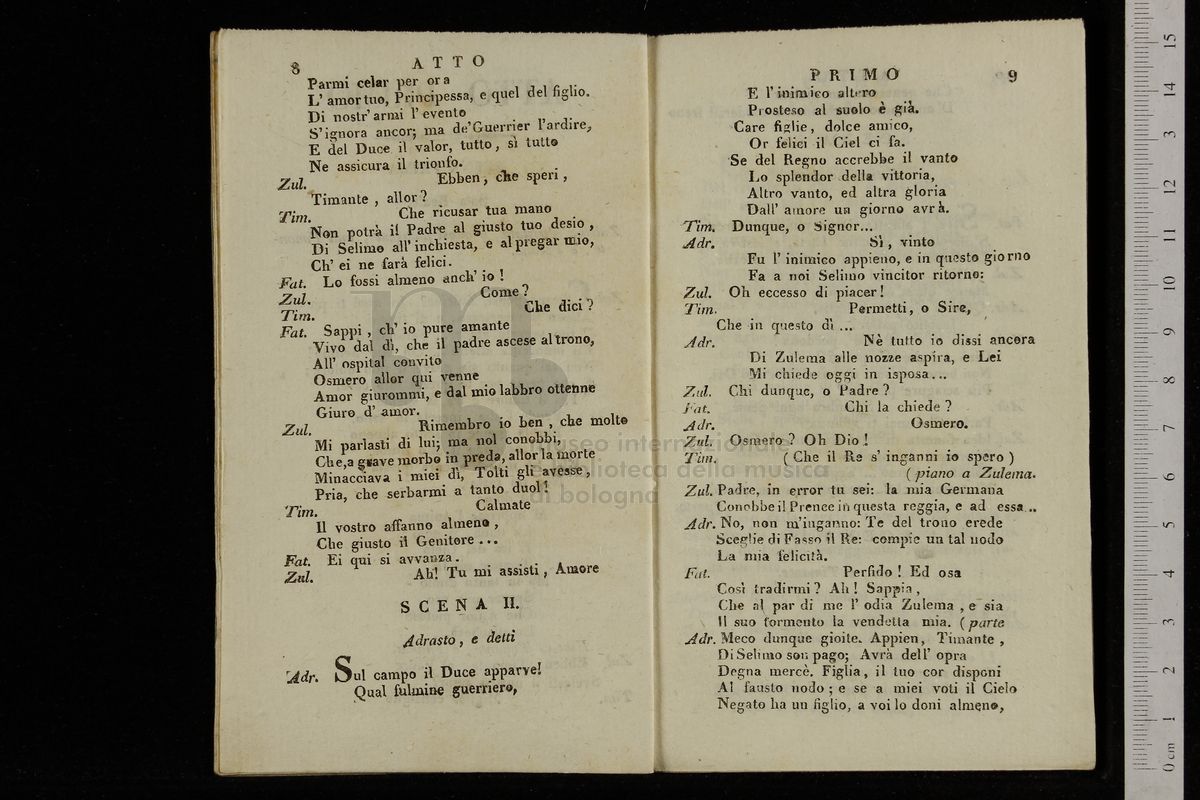 8 ATTO
Parmi celar per ora
L' amor tuo, Principessa, e quel del figlio.
Di nostr' armi l' evento
S' ignora ancor; ma de' Guerrier l' ardire,
E del Duce il valor, tutto, sì tutto
Ne assicura il trionfo.
Zul. Ebben, che speri,
Timante, allor?
Tim. Che ricusar tua mano
Non potrà il Padre al giusto tuo desio,
Di Selimo all' inchiesta, e al pregar mio,
Ch' ei ne farà felici.
Fat. Lo fossi almeno anch' io!
Zul. Come?
Tim. Che dici?
Fat. Sappi, ch' io pure amante
Vivo dal dì, che il padre ascese al trono,
All' ospital convito
Osmero allor qui venne
Amor giurommi, e dal mio labbro ottenne
Giuro d' amor.
Zul. Rimembro io ben, che molto
Mi parlasti di lui; ma nol conobbi,
Che, a grave morbo in preda, allor la morte
Minacciava i miei dì, Tolti gli avesse,
Pria, che serbarmi a tanto duol!
Tim. Calmate
Il vostro affanno almeno,
Che giusto il Genitore ...
Fat. Ei qui si avvanza.
Zul. Ah! Tu mi assisti, Amore
SCENA II.
Adrasto, e detti
Adr. Sul campo il Duce apparve!
Qual fulmine guerriero,
PRIMO 9
E l' inimico altero
Prosteso al suolo è già.
Care figlie, dolce amico,
Or felici il Ciel ci fa.
Se del Regno accrebbe il vanto
Lo splendor della vittoria,
Altro vanto, ed altra gloria
Dall' amore un giorno avrà.
Tim. Dunque, o Signor...
Adr. Sì, vinto
Fu l' inimico appieno, e in questo giorno
Fa a noi Selimo vincitor ritorno:
Zul. Oh eccesso di piacer!
Tim. Permetti, o Sire,
Che in questo dì ...
Adr. Nè tutto io dissi ancora
Di Zulema alle nozze aspira, e Lei
Mi chiede oggi in isposa...
Zul. Chi dunque, o Padre?
Fat. Chi la chiede?
Adr. Osmero.
Zul. Osmero? Oh Dio!
Tim. (Che il Re s' inganni io spero)
(piano a Zulema.
Zul. Padre, in error tu sei: la mia Germana
Conobbe il Prence in questa reggia, e ad essa..
Adr. No, non m'inganno: Te del trono erede
Sceglie di Fasso il Re: compie un tal nodo
La mia felicità.
Fat. Perfido! Ed osa
Così tradirmi? Ah! Sappia,
Che al par di me l' odia Zulema, e sia
Il suo tormento la vendetta mia. (parte
Adr. Meco dunque gioite. Appien, Timante,
Di Selimo son pago; Avrà dell' opra
Degna mercè. Figlia, il tuo cor disponi
Al fausto nodo; e se a miei voti il Cielo
Negato ha un figlio, a voi lo doni almeno,
museo internazionale
e biblioteca della musica
di bologna
0 cm 1 2 3 4 5 6 7 8 9 10 11 12 13 14 15